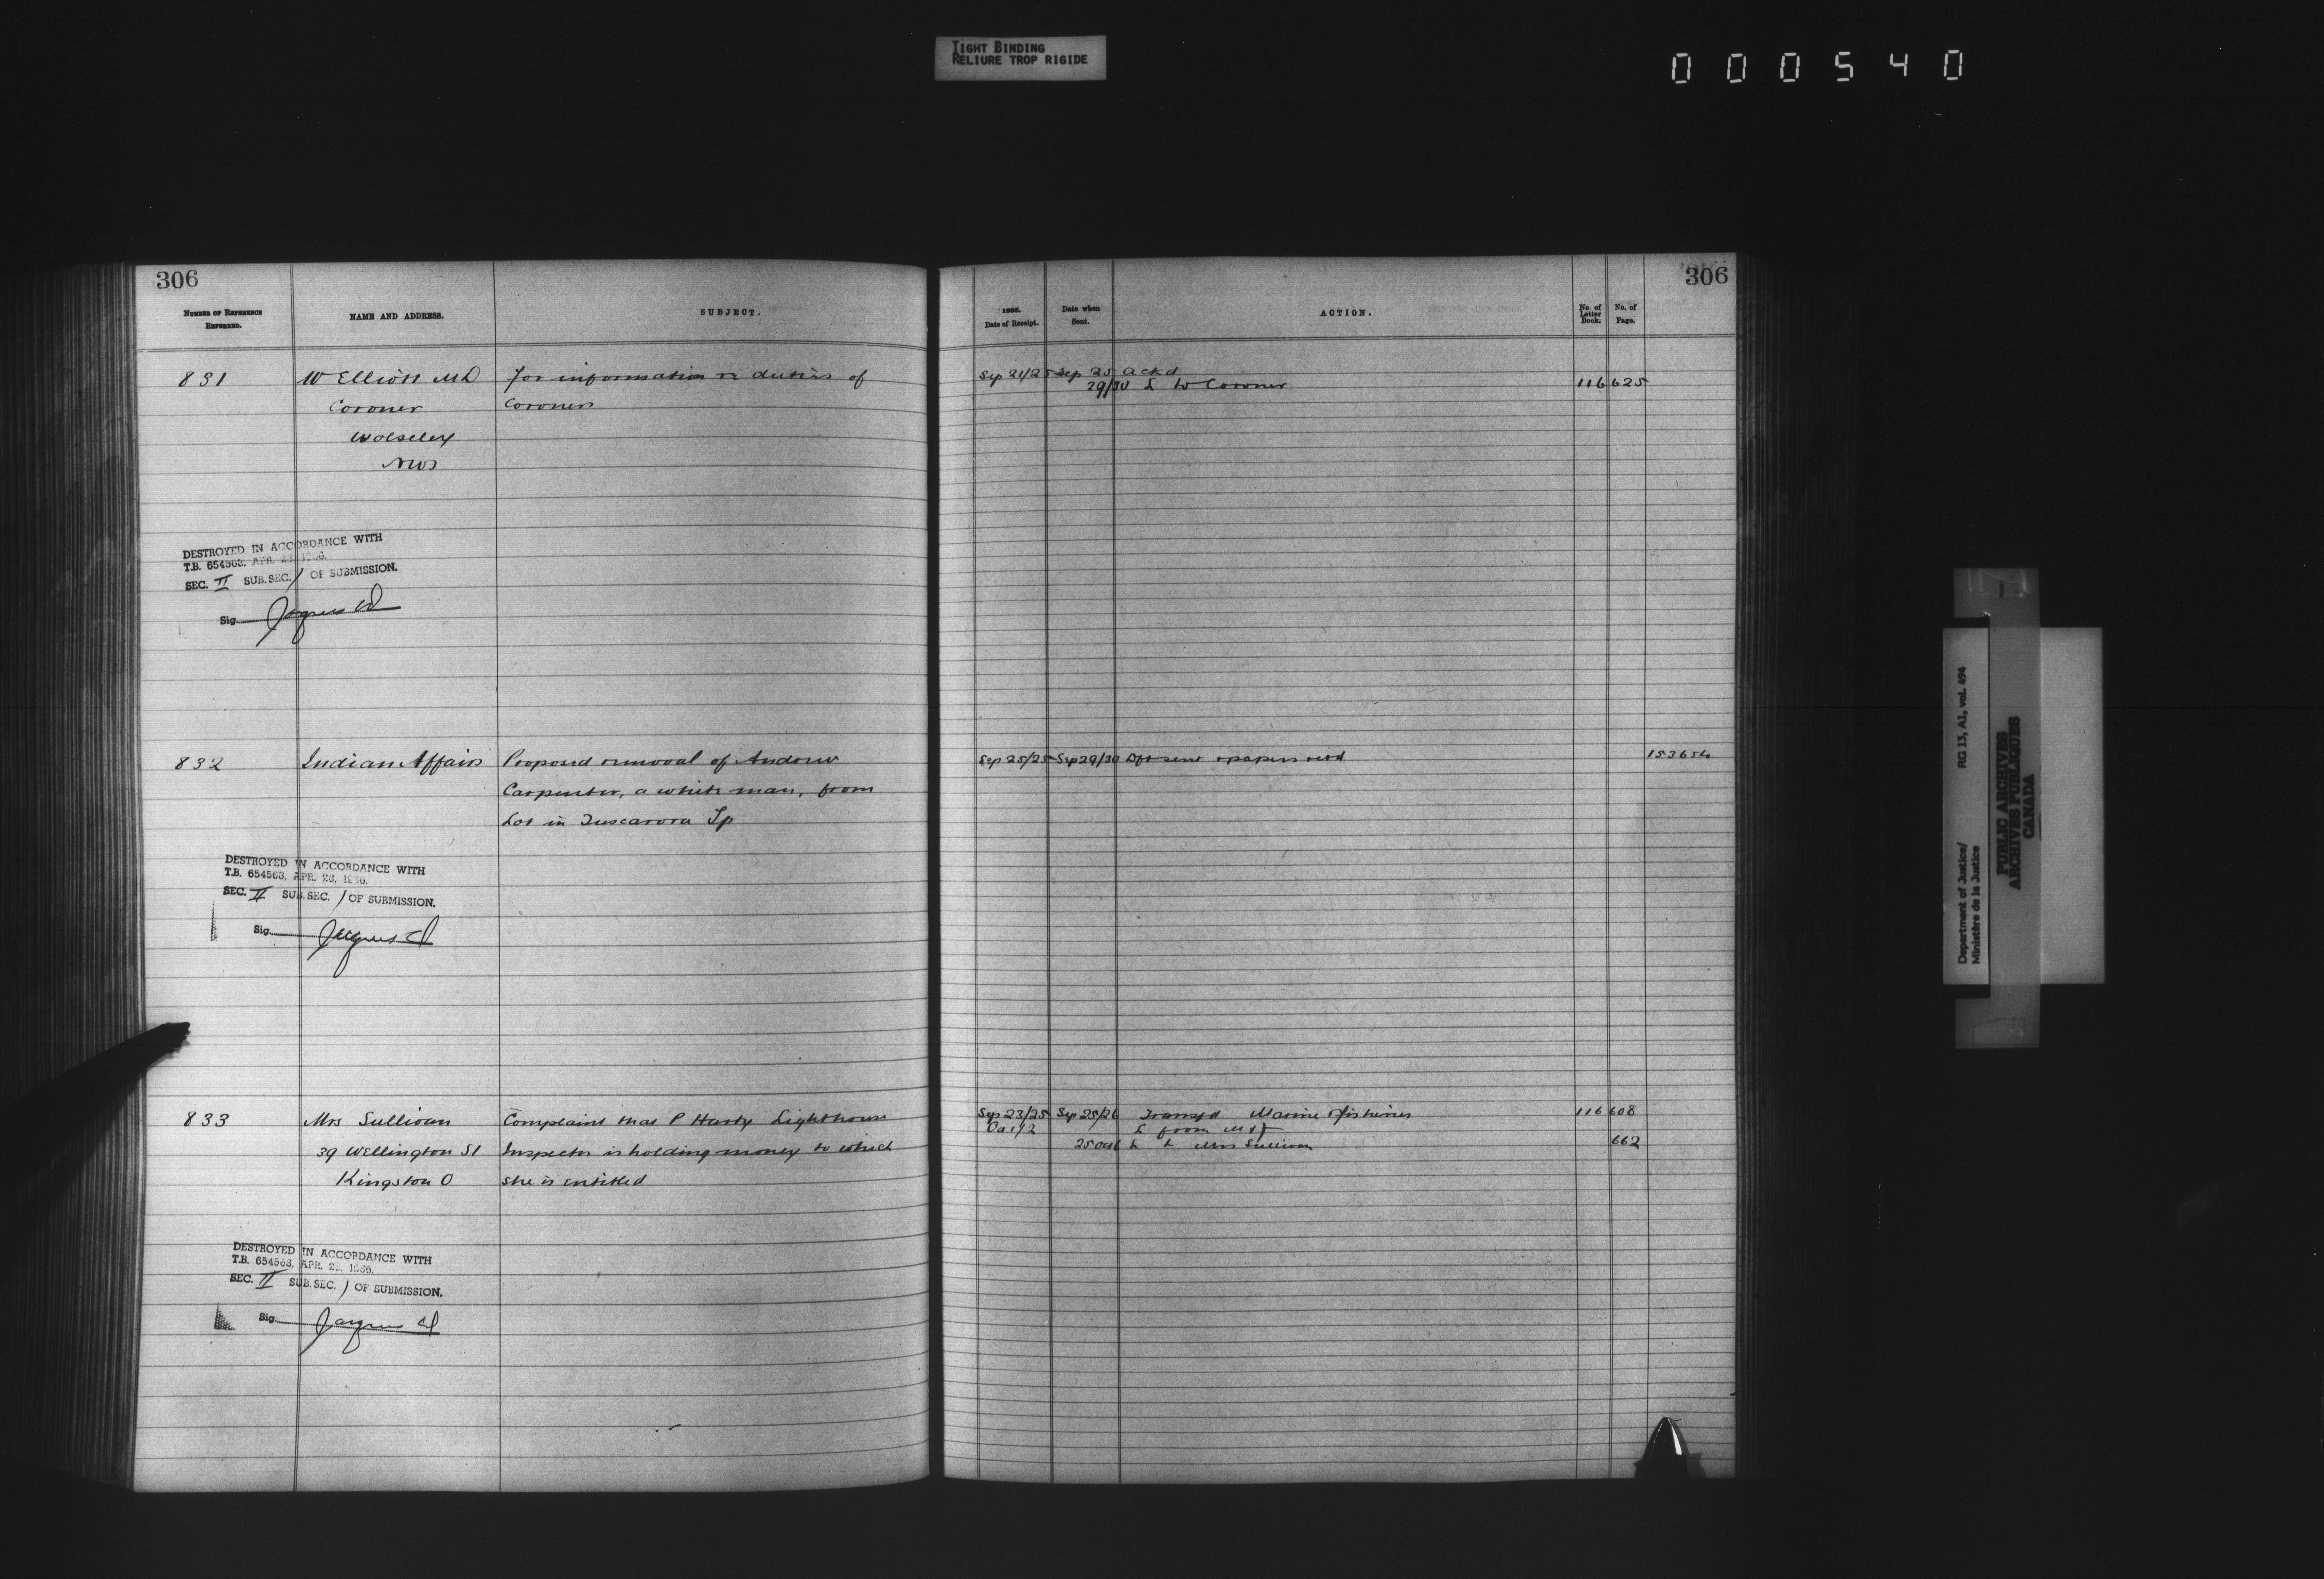 TIGHT BINDING
RELIURE TROP RIGIDE
000540
306
306
NUMBER OF REFERENCE
REFERRED.
NAME AND ADDRESS.
SUBJECT.
Date of Receipt.
Date when
Sent.
ACTION.
No. of
Letter
Book.
No. of
Page.
831
W Elliott MD
For information re duties of
Sep 21/25
Sep 25
Ackd
Coroner
Coroners
29/30
L to Coroner
116
625
Wolseley
NWT
DESTROYED IN ACCORDANCE WITH
T.B. 654563, APR. 28, 1966.
SEC. II SUB.SEC. 1 OF SUBMISSION.
Sig.
832
Indian Affairs
Proposed removal of Andrew
Sep 25/25
Sep 29/30
Dft sent & papers retd
153654
Carpenter, a white man, from
Lot in Tuscarora Tp
DESTROYED IN ACCORDANCE WITH
T.B. 654563, APR. 28, 1966.
SEC. II SUB.SEC. 1 OF SUBMISSION.
Sig.
833
Mrs Sullivan
Complaint that P Harty Lighthouse
Sep 23/25
Sep 25/26
Transfd Marine & fisheries
116
608
Oct 1/2
L from M & F
39 Wellington St
Inspector is holding money to which
L to Mrs Sullivan
662
Kingston O
she is entitled
DESTROYED IN ACCORDANCE WITH
T.B. 654563, APR. 28, 1966.
SEC. II SUB.SEC. 1 OF SUBMISSION.
Sig.
Department of Justice/
Ministère de la Justice
RG 13, A1, vol. 494
PUBLIC ARCHIVES
ARCHIVES PUBLIQUES
CANADA